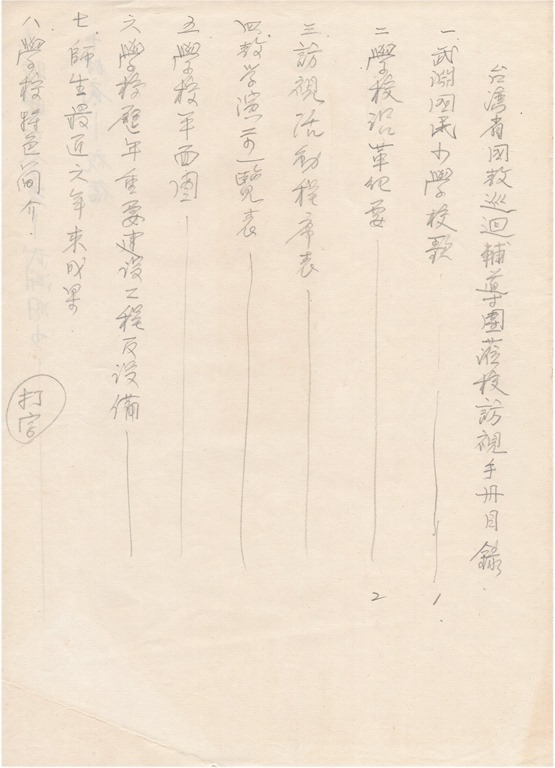 台湾省國教巡迴輔導團蒞校訪視手册目錄
一武淵國民小學校歌 1
二學校沿革纪要 2
三訪視活動程序表
四教学演示一覽表
五學校平面圖
六學校歷年重要建設工程及設備
七師生最近六年来成果
八學校特色简介
打字